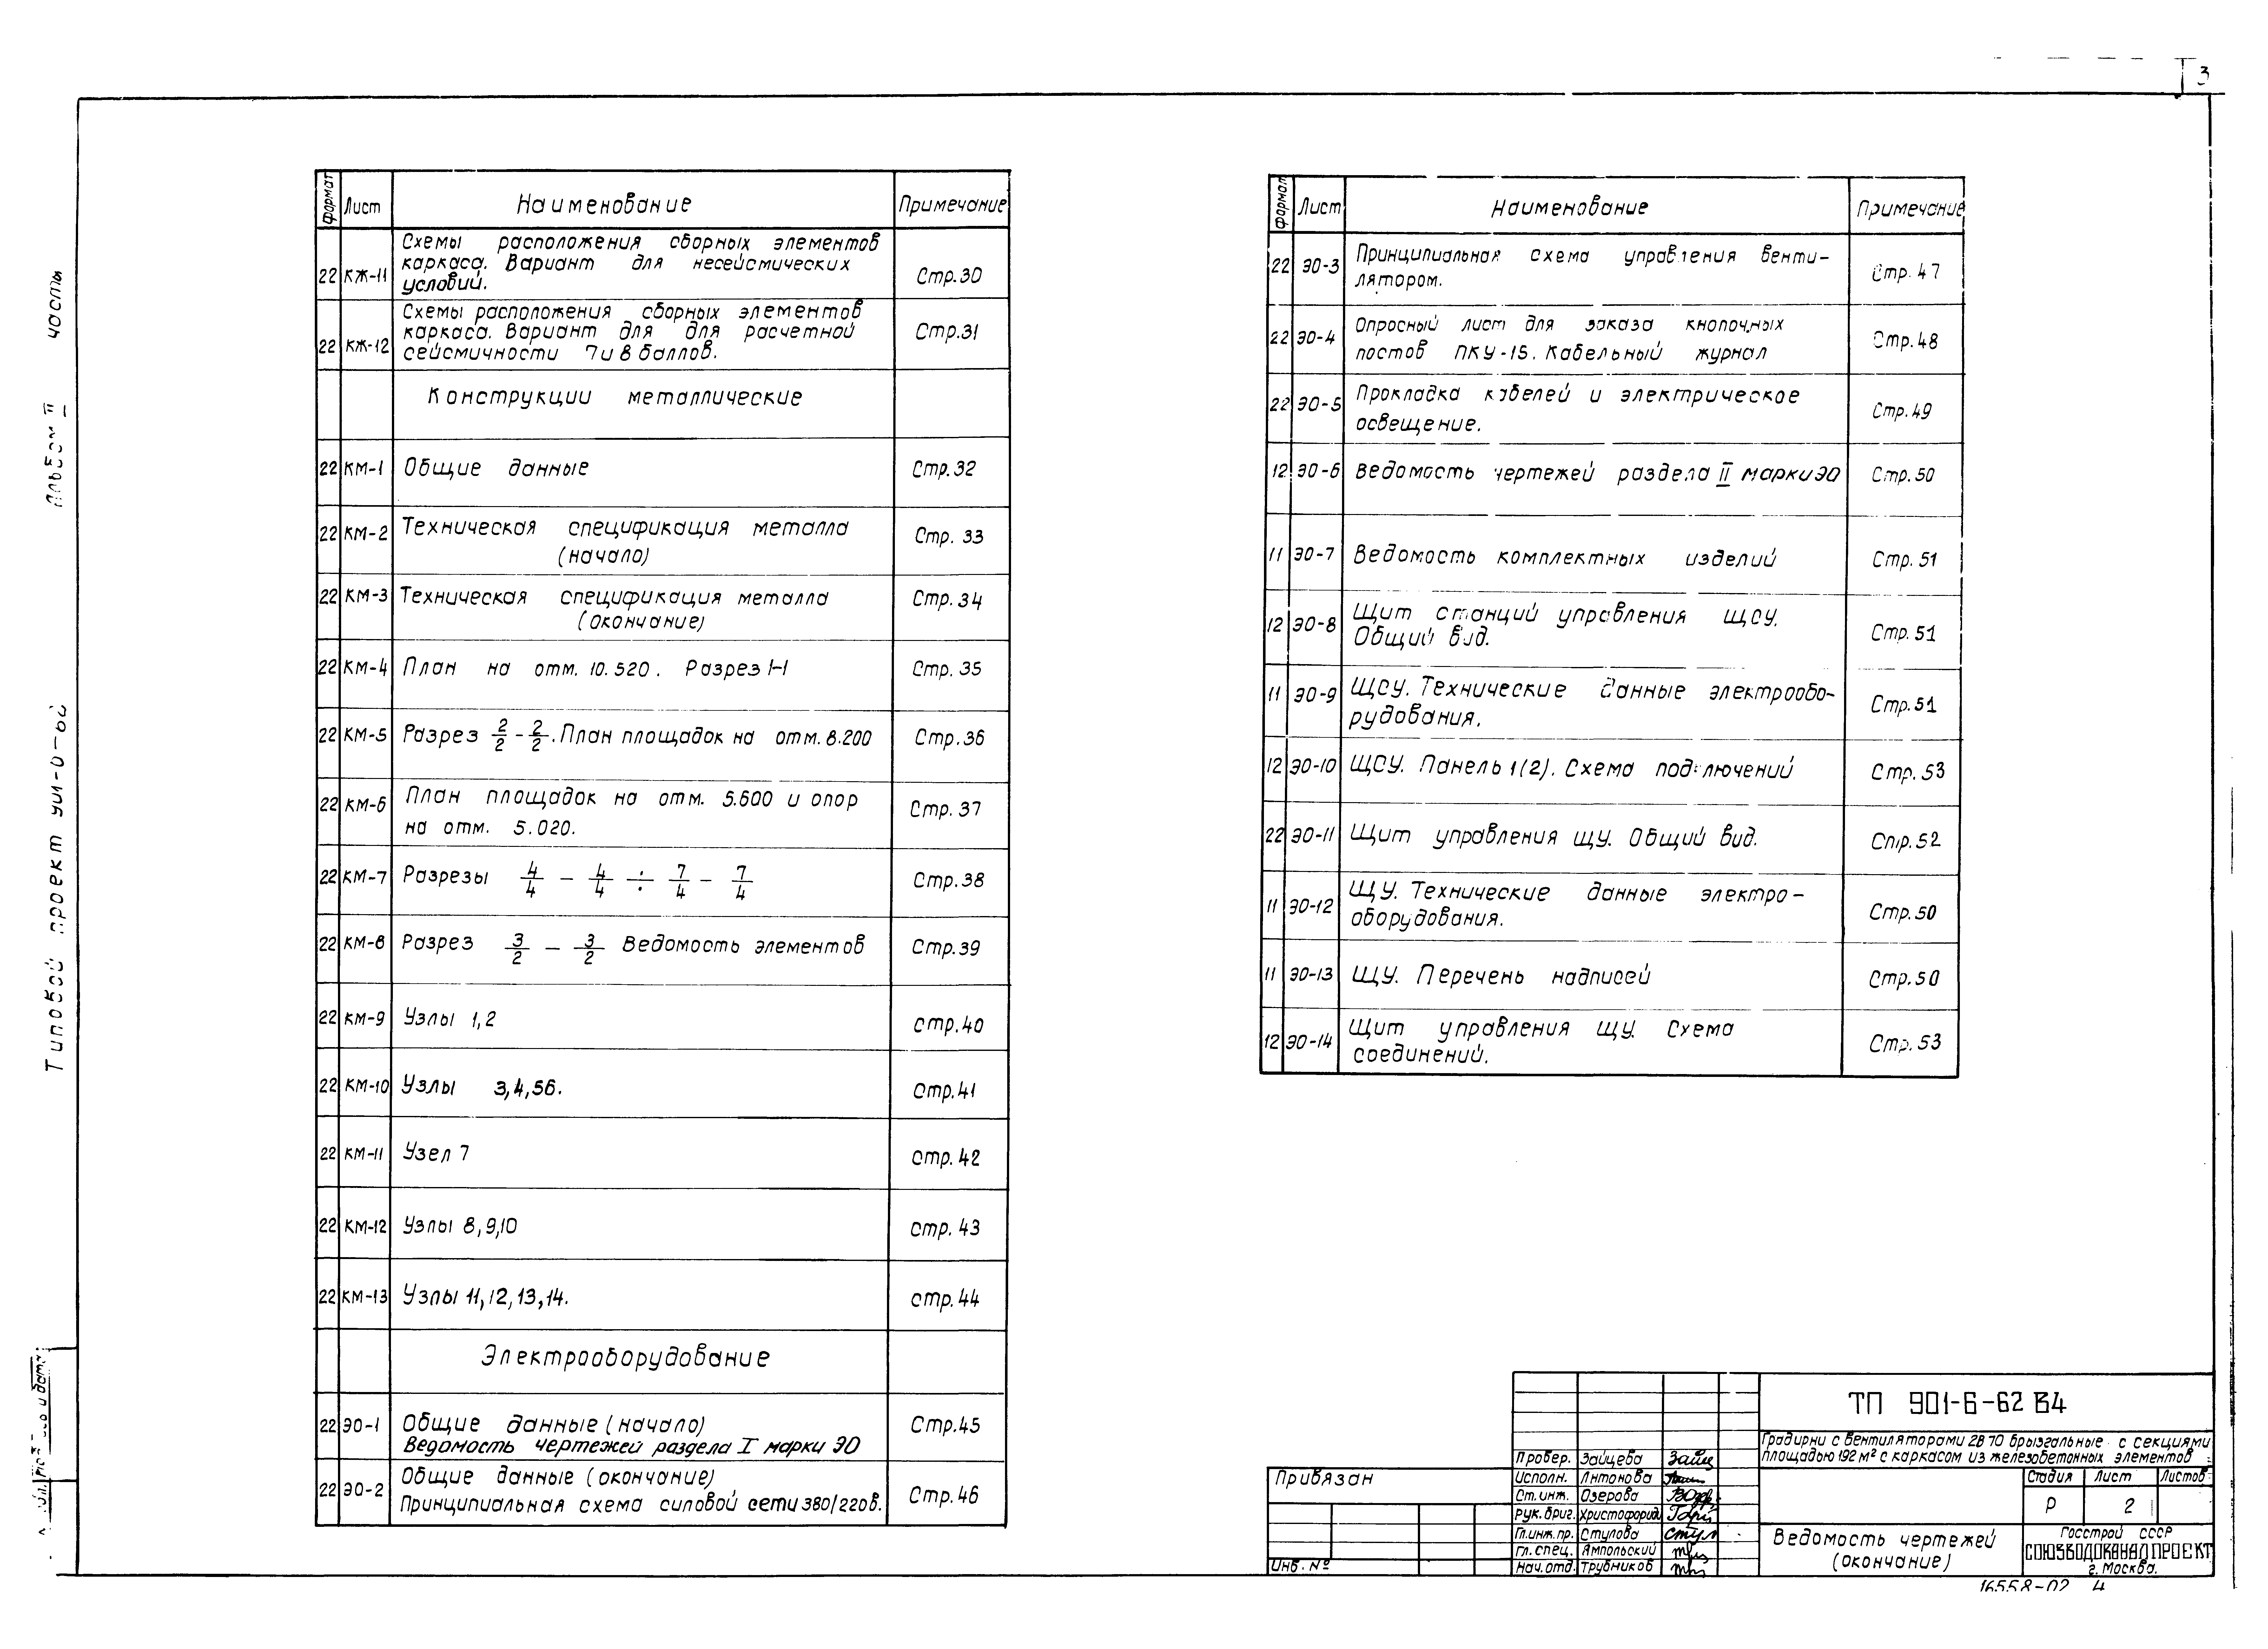 3
Формат Лист Наименование Примечание
22 КЖ-11 Схемы расположения сборных элементов
каркаса. Вариант для несейсмических
условий. Стр.30
22 КЖ-12 Схемы расположения сборных элементов
каркаса. Вариант для для расчетной
сейсмичности 7 и 8 баллов. Стр.31
Конструкции металлические
22 КМ-1 Общие данные Стр.32
22 КМ-2 Техническая спецификация металла
(начало) Стр. 33
22 КМ-3 Техническая спецификация металла
(окончание) Стр.34
22 КМ-4 План на отм. 10.520. Разрез 1-1 Стр.35
22 КМ-5 Разрез 2/2 - 2/2. План площадок на отм. 8.200 Стр.36
22 КМ-6 План площадок на отм. 5.600 и опор
на отм. 5.020. Стр.37
22 КМ-7 Разрезы 4/4 - 4/4 ÷ 7/4 - 7/4 Стр.38
22 КМ-8 Разрез 3/2 - 3/2 Ведомость элементов Стр.39
22 КМ-9 Узлы 1,2 стр.40
22 КМ-10 Узлы 3,4,56. стр.41
22 КМ-11 Узел 7 стр.42
22 КМ-12 Узлы 8,9,10 стр.43
22 КМ-13 Узлы 11,12,13,14. стр.44
Электрооборудование
22 ЭО-1 Общие данные (начало)
Ведомость чертежей раздела I марки ЭО Стр.45
22 ЭО-2 Общие данные (окончание)
Принципиальная схема силовой сети 380/220в. Стр.46
Формат Лист Наименование Примечание
22 ЭО-3 Принципиальная схема управления венти-
лятором. Стр.47
22 ЭО-4 Опросный лист для заказа кнопочных
постов ПКУ-15. Кабельный журнал Стр.48
22 ЭО-5 Прокладка кабелей и электрическое
освещение. Стр.49
12 ЭО-6 Ведомость чертежей раздела II марки ЭО Стр.50
11 ЭО-7 Ведомость комплектных изделий Стр.51
12 ЭО-8 Щит станций управления ЩСУ.
Общий вид. Стр.51
11 ЭО-9 ЩСУ. Технические данные электрообо-
рудования. Стр.51
12 ЭО-10 ЩСУ. Панель 1(2). Схема подключений Стр.53
22 ЭО-11 Щит управления ЩУ. Общий вид. Стр.52
11 ЭО-12 ЩУ. Технические данные электро-
оборудования. Стр.50
11 ЭО-13 ЩУ. Перечень надписей Стр.50
12 ЭО-14 Щит управления ЩУ. Схема
соединений. Стр.53
Типовой проект
Альбом II
части
Привязан
Инв. №
Провер. Зайцева
Исполн. Антонова
Ст.инж. Озерова
Рук.бриг. Христофориди
Гл.инж.пр. Стулова
Гл.спец. Ямпольский
Нач.отд. Трубников
ТП 901-6-62 В4
Градирни с вентиляторами 2В70 брызгальные с секциями
площадью 192 м² с каркасом из железобетонных элементов
Стадия Лист Листов
Р 2
Ведомость чертежей
(окончание)
Госстрой СССР
СОЮЗВОДОКАНАЛПРОЕКТ
г. Москва.
16558-02 4